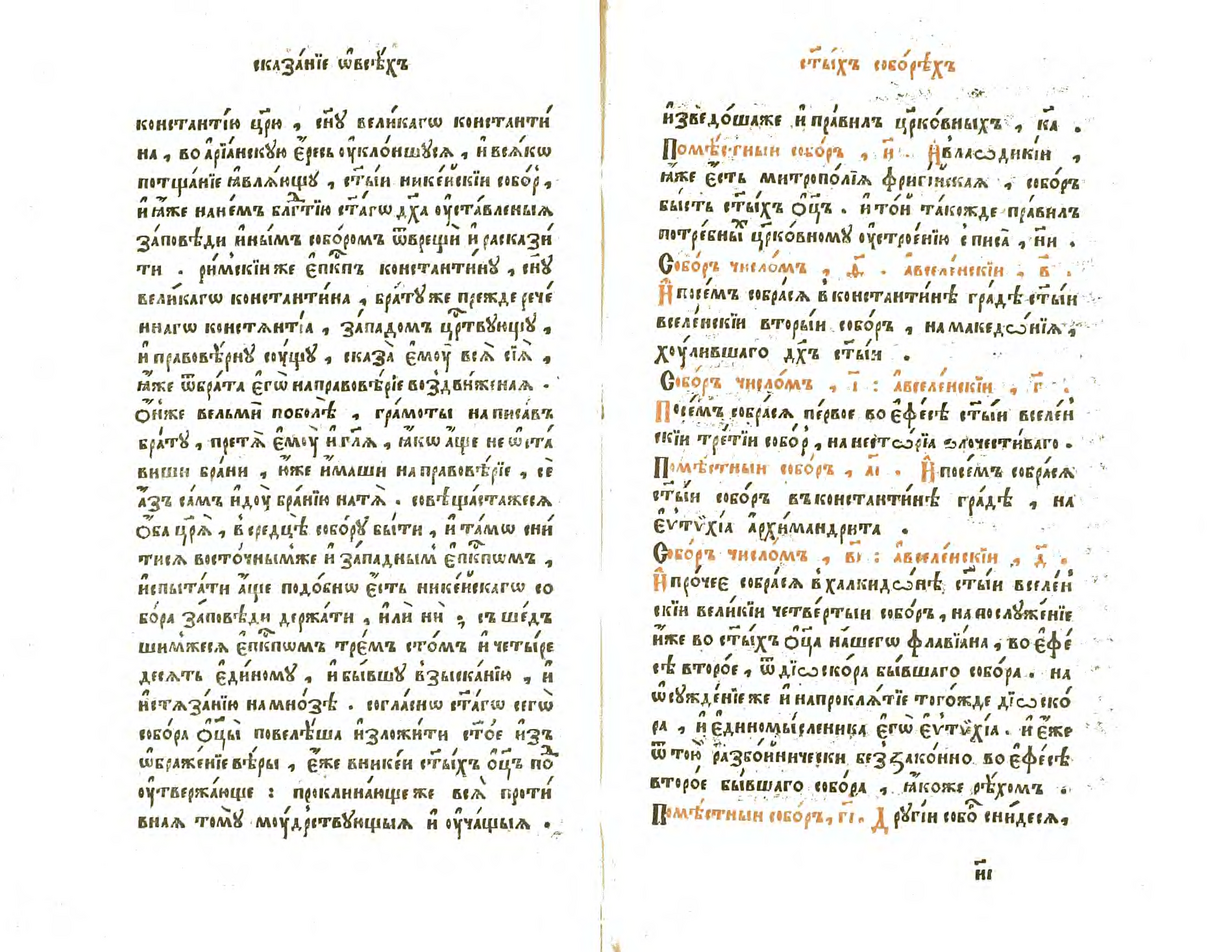 сказа́нїе ѡ҆всѣ́хъ
константі́ю цр҃ю , сн҃у вели́кагѡ константи́
на , во а҆рїа́нскую є҆́ресь ѹ҆кло́ншуся , и҆ вся́кѡ
потща́нїе ꙗ҆вля́ющу , ст҃ы́и нике́искїи собо́р ,
и҆ ꙗ҆́же нане́мъ бл҃гтїю ст҃а́гѡ дх҃а ѹ҆ста́вленыѧ
за́повѣди и҆ны́мъ собо́ромъ ѿврещѝ и҆ раскази́
ти . ри́мскїи же є҆пк҃пъ константи́ну , сн҃у
вели́кагѡ константи́на , бра́ту же пре́жде рече́
ннагѡ констѧ́нтїа , за́падомъ цр҃твующу ,
и҆ правовѣ́рну сѹ́щу , сказа̀ є҆мѹ̀ всѧ̀ сїѧ̀ ,
ꙗ҆́же ѿ бра́та є҆гѡ̀ на правовѣ́рїе воздви́женаѧ .
ѻ҆́н же вельмѝ поболѣ̀ , гра́моты написа́въ
бра́ту , претѧ̀ є҆мѹ̀ и҆ гл҃ѧ , ꙗ҆́кѡ а҆́ще не ѡ҆ста́
виши бра́ни , ю҆́же и҆́маши на правовѣ́рїе , сѐ
а҆́зъ са́мъ и҆дѹ̀ бра́нїю на тѧ̀ . совѣща́стажесѧ
ѻ҆́ба цр҃ѧ̀ , в средцѣ̀ собо́ру бы́ти , и҆ та́мѡ сни́
тисѧ восто́чнымже и҆ за́падным є҆пк҃пѡмъ ,
и҆спыта́ти а҆́ще подо́бнѡ є҆́сть нике́искагѡ со
бо́ра за́повѣди держа́ти , и҆лѝ нѝ ; съшéд
ши́мжесѧ є҆пк҃пѡмъ тре́мъ сто́м и҆ четы́ре
десѧть є҆ди́ному , и҆ бы́вшу взыска́нїю , и҆
и҆стѧза́нїю на мно́зѣ . согла́снѡ ст҃а́гѡ сегѡ̀
собо́ра ѻ҆ц҃ы̀ повелѣ́ша и҆зложи́ти ст҃о́е и҆зъ
ѡ҆браже́нїе вѣ́ры , є҆́же в нике́и ст҃ы́хъ ѻ҆ц҃ъ по
ѹ҆твержа́юще : проклина́юще же всѧ̀ проти́
внаѧ то́мѹ мѹ́дрствующыѧ и҆ ѹ҆ча́щыѧ .
ст҃ы́хъ собо́рѣхъ
и҆зведо́шаже и҆ пра́вилъ цр҃ко́вныхъ , к҃а .
Помѣ́стныи собо́ръ , и҃ . И҆ влаѡдикі́и ,
ꙗ҆́же є҆́сть митропо́лїѧ фриги́йскаѧ , собо́ръ
бы́сть ст҃ы́хъ ѻ҆ц҃ъ . и҆ то́и та́кожде пра́вилъ
потре́бны цр҃ко́вному ѹ҆строе́нїю списа̀ , н҃и .
Собо́ръ число́мъ , ѳ҃ . а҆ вселе́нскїи , в҃ .
И҆ посе́мъ собра́сѧ в константи́нѣ гра́дѣ ст҃ы́и
вселе́нскїи вторы́и собо́ръ , на македѡ́нїѧ ,
хѹ́лившаго дх҃ъ ст҃ы́и .
Собо́ръ число́мъ , і҃ : а҆ вселе́нскїи , г҃ .
Посе́мъ собра́сѧ пе́рвое во є҆фе́сѣ ст҃ы́и вселе́н
скїи тре́тїи собо́р , на нестѡ́рїа ѕлочести́ваго .
Помѣ́стныи собо́ръ , а҃і . И҆ посе́мъ собра́сѧ
ст҃ы́и собо́ръ въ константи́нѣ гра́дѣ , на
є҆ѵтѷхі́а а҆рхимандри́та .
Собо́ръ число́мъ , в҃і : а҆ вселе́нскїи , д҃ .
И҆ про́чее собра́сѧ в халкидѡ́нѣ ст҃ы́и вселе́н
скїи вели́кїи четве́ртыи собо́ръ , на послуже́нїе
и҆́же во ст҃ы́хъ ѻ҆ц҃а на́шегѡ флавїа́на , во є҆фе́
сѣ второ́е , ѿ дїѡско́ра бы́вшаго собо́ра . на
ѡ҆сужде́нїе же и҆ на проклѧ́тїе того́жде дїѡско́
ра , и҆ є҆диномы́сленица є҆гѡ̀ є҆ѵтѷхі́а . и҆ є҆́же
ѿ тою̀ разбо́иннически без зако́нно во є҆фе́сѣ
второ́е бы́вшаго собо́ра , ꙗ҆́коже рѣ́хом .
Помѣ́стныи собо́ръ , г҃і . Другі́и собо сни́десѧ ,
н҃і